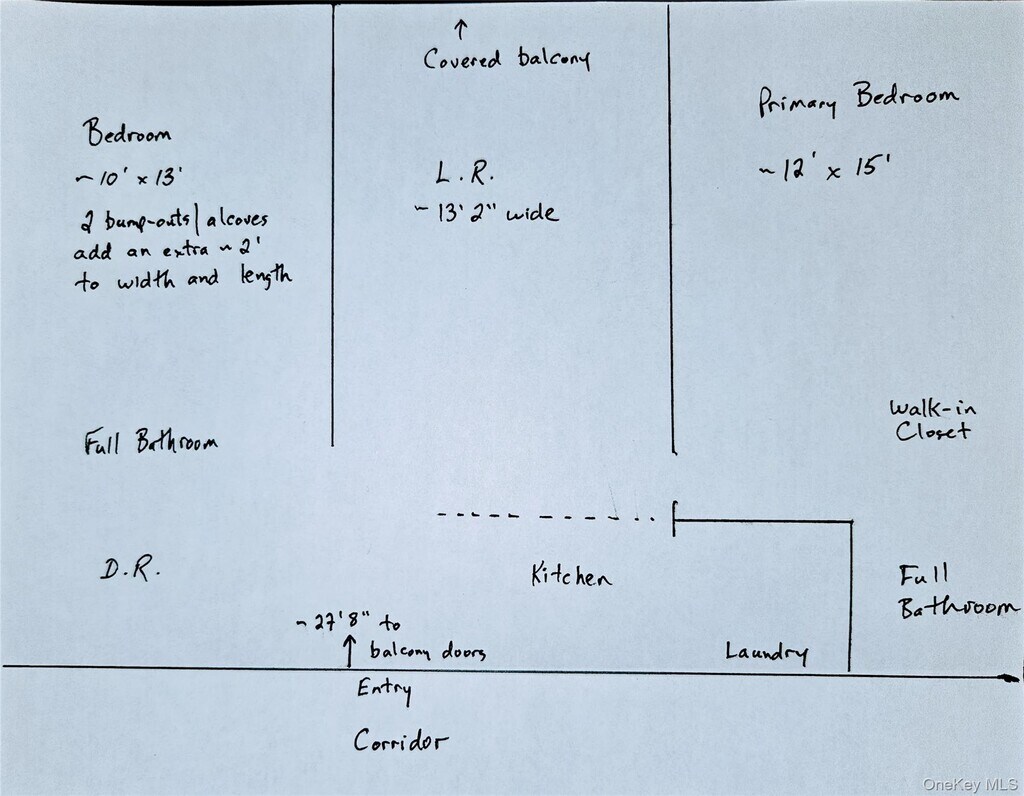 ↑
Covered balcony
Primary Bedroom
~ 12' x 15'
Bedroom
~ 10' x 13'
2 bump-outs/alcoves
add an extra ~ 2'
to width and length
L.R.
~ 13' 2" wide
Walk-in
Closet
Full Bathroom
D.R.
Kitchen
Full
Bathroom
~ 27' 8" to
↑ balcony doors
Laundry
Entry
Corridor
OneKey MLS